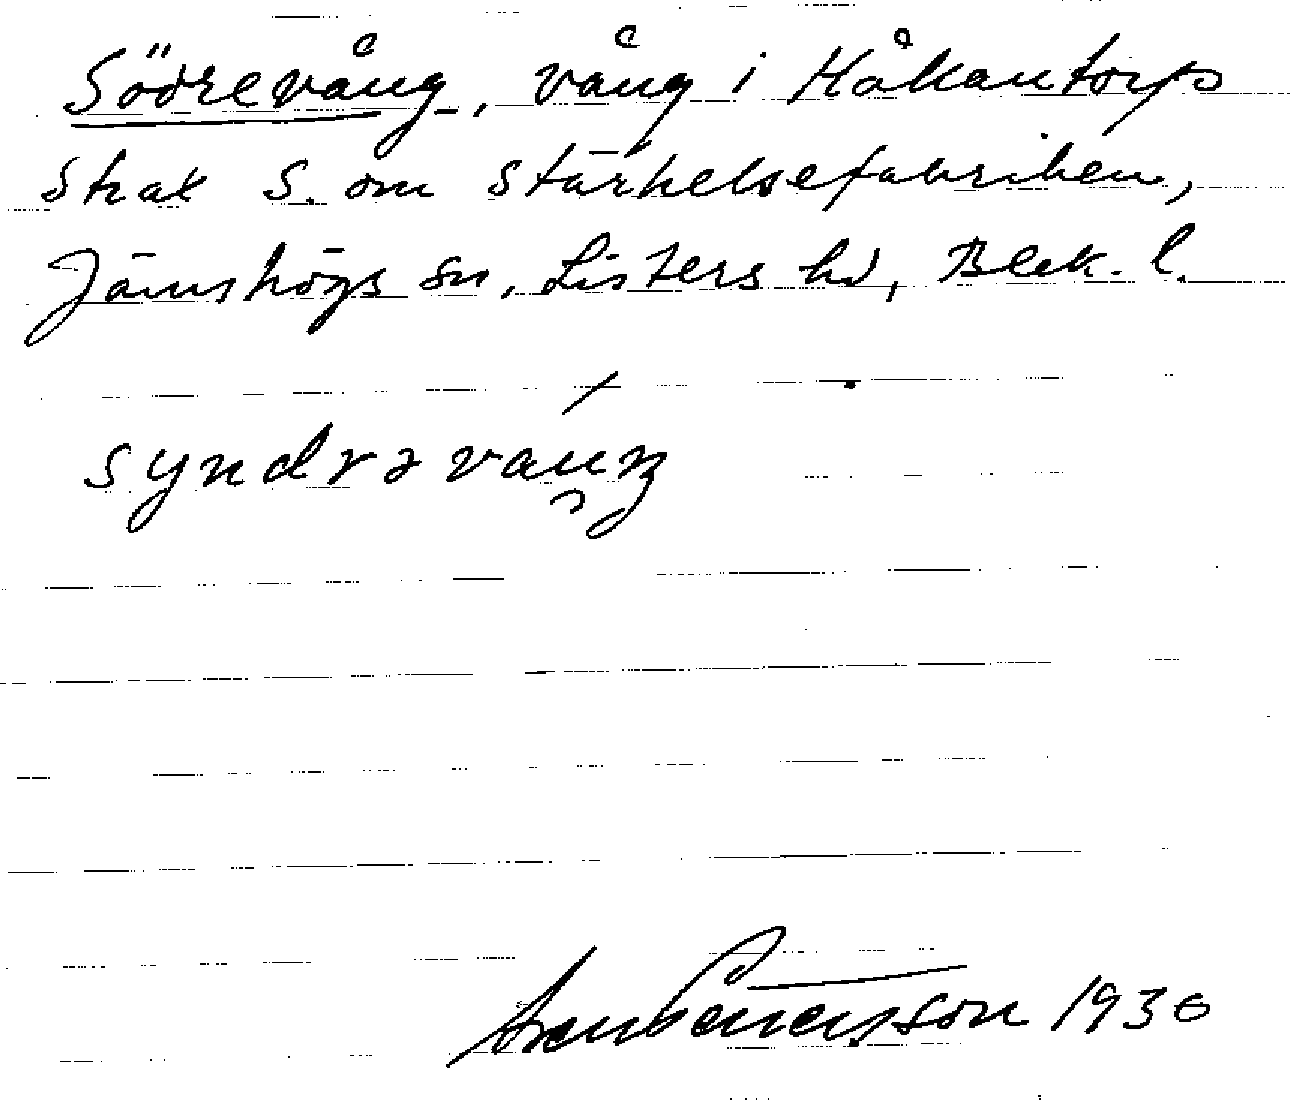 Södrevång, vång i Håkantorp
Strax S. om Stärkelsefabriken,
Jämshögs sn, Listers hd, Blek. l.
syndrəvauŋ
1930